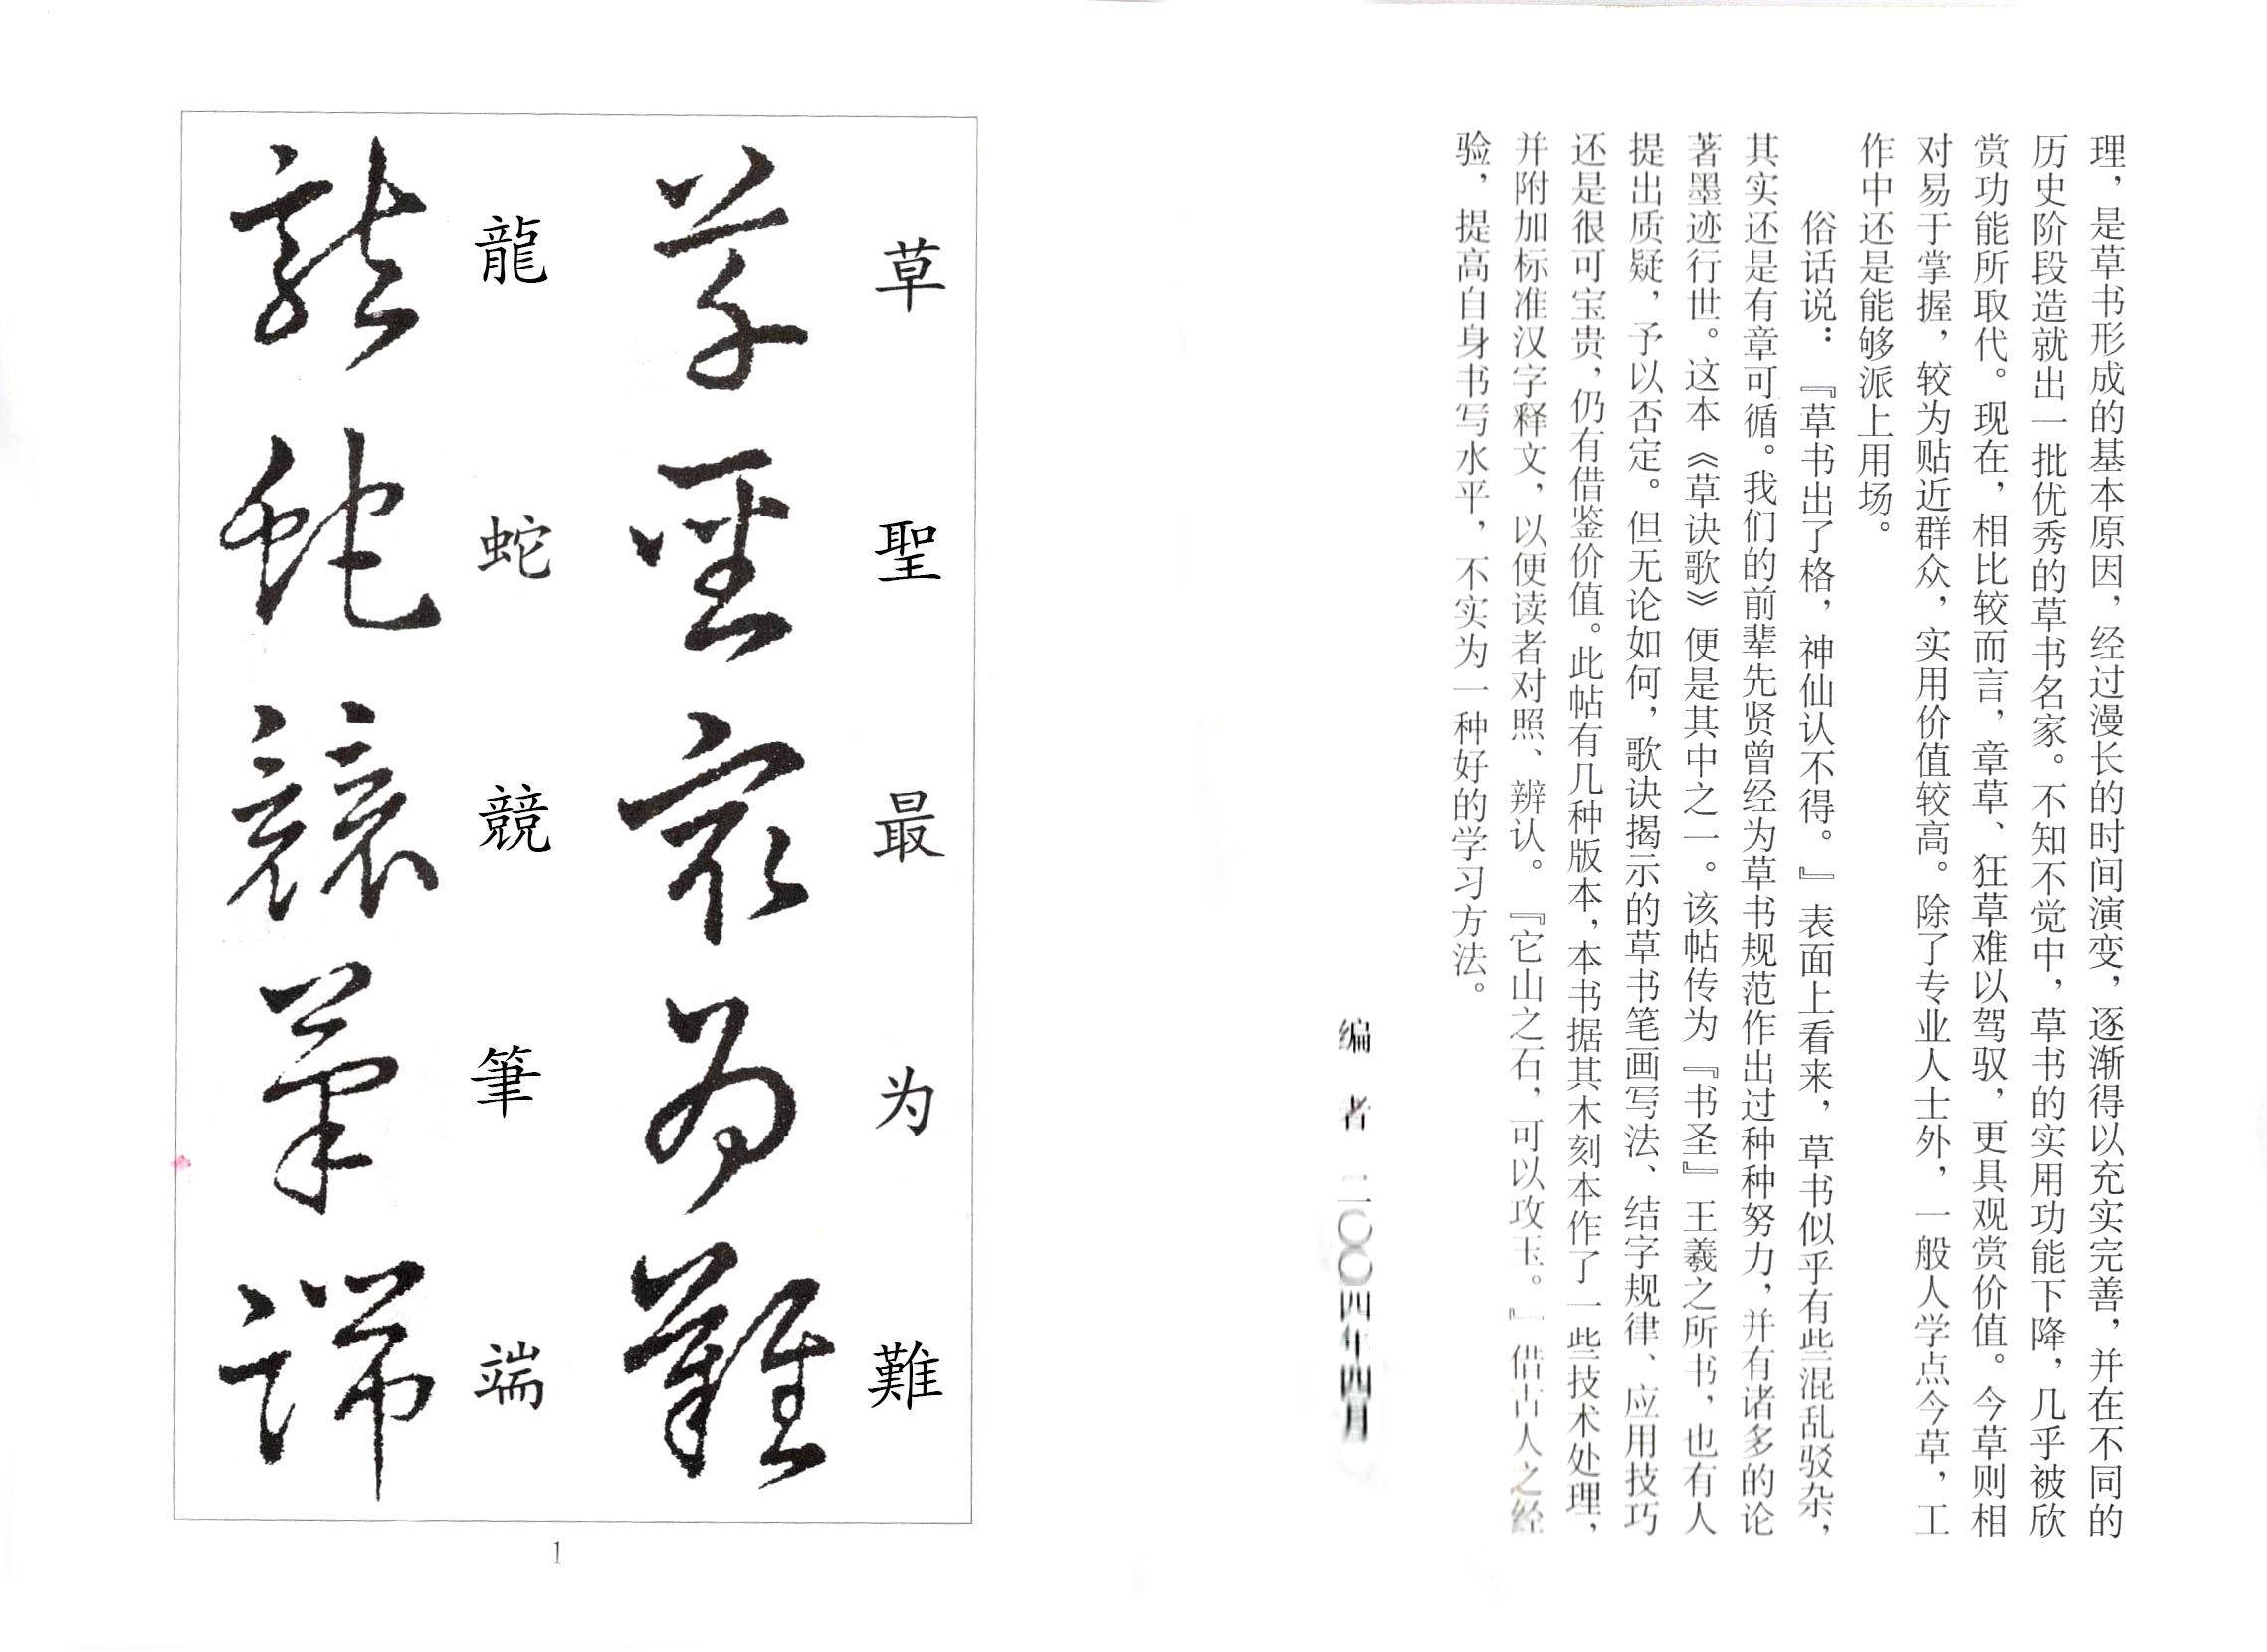 理，是草书形成的基本原因，经过漫长的时间演变，逐渐得以充实完善，并在不同的
历史阶段造就出一批优秀的草书名家。不知不觉中，草书的实用功能下降，几乎被欣
赏功能所取代。现在，相比较而言，章草、狂草难以驾驭，更具观赏价值。今草则相
对易于掌握，较为贴近群众，实用价值较高。除了专业人士外，一般人学点今草，工
作中还是能够派上用场。
俗话说：『草书出了格，神仙认不得。』表面上看来，草书似乎有些混乱驳杂，
其实还是有章可循。我们的前辈先贤曾经为草书规范作出过种种努力，并有诸多的论
著墨迹行世。这本《草诀歌》便是其中之一。该帖传为『书圣』王羲之所书，也有人
提出质疑，予以否定。但无论如何，歌诀揭示的草书笔画写法、结字规律、应用技巧
还是很可宝贵，仍有借鉴价值。此帖有几种版本，本书据其木刻本作了一些技术处理，
并附加标准汉字释文，以便读者对照、辨认。『它山之石，可以攻玉。』借古人之经
验，提高自身书写水平，不实为一种好的学习方法。
编者 二〇〇四年四月
草聖最为難
草聖最为難
龍蛇競筆端
龍蛇競筆端
1